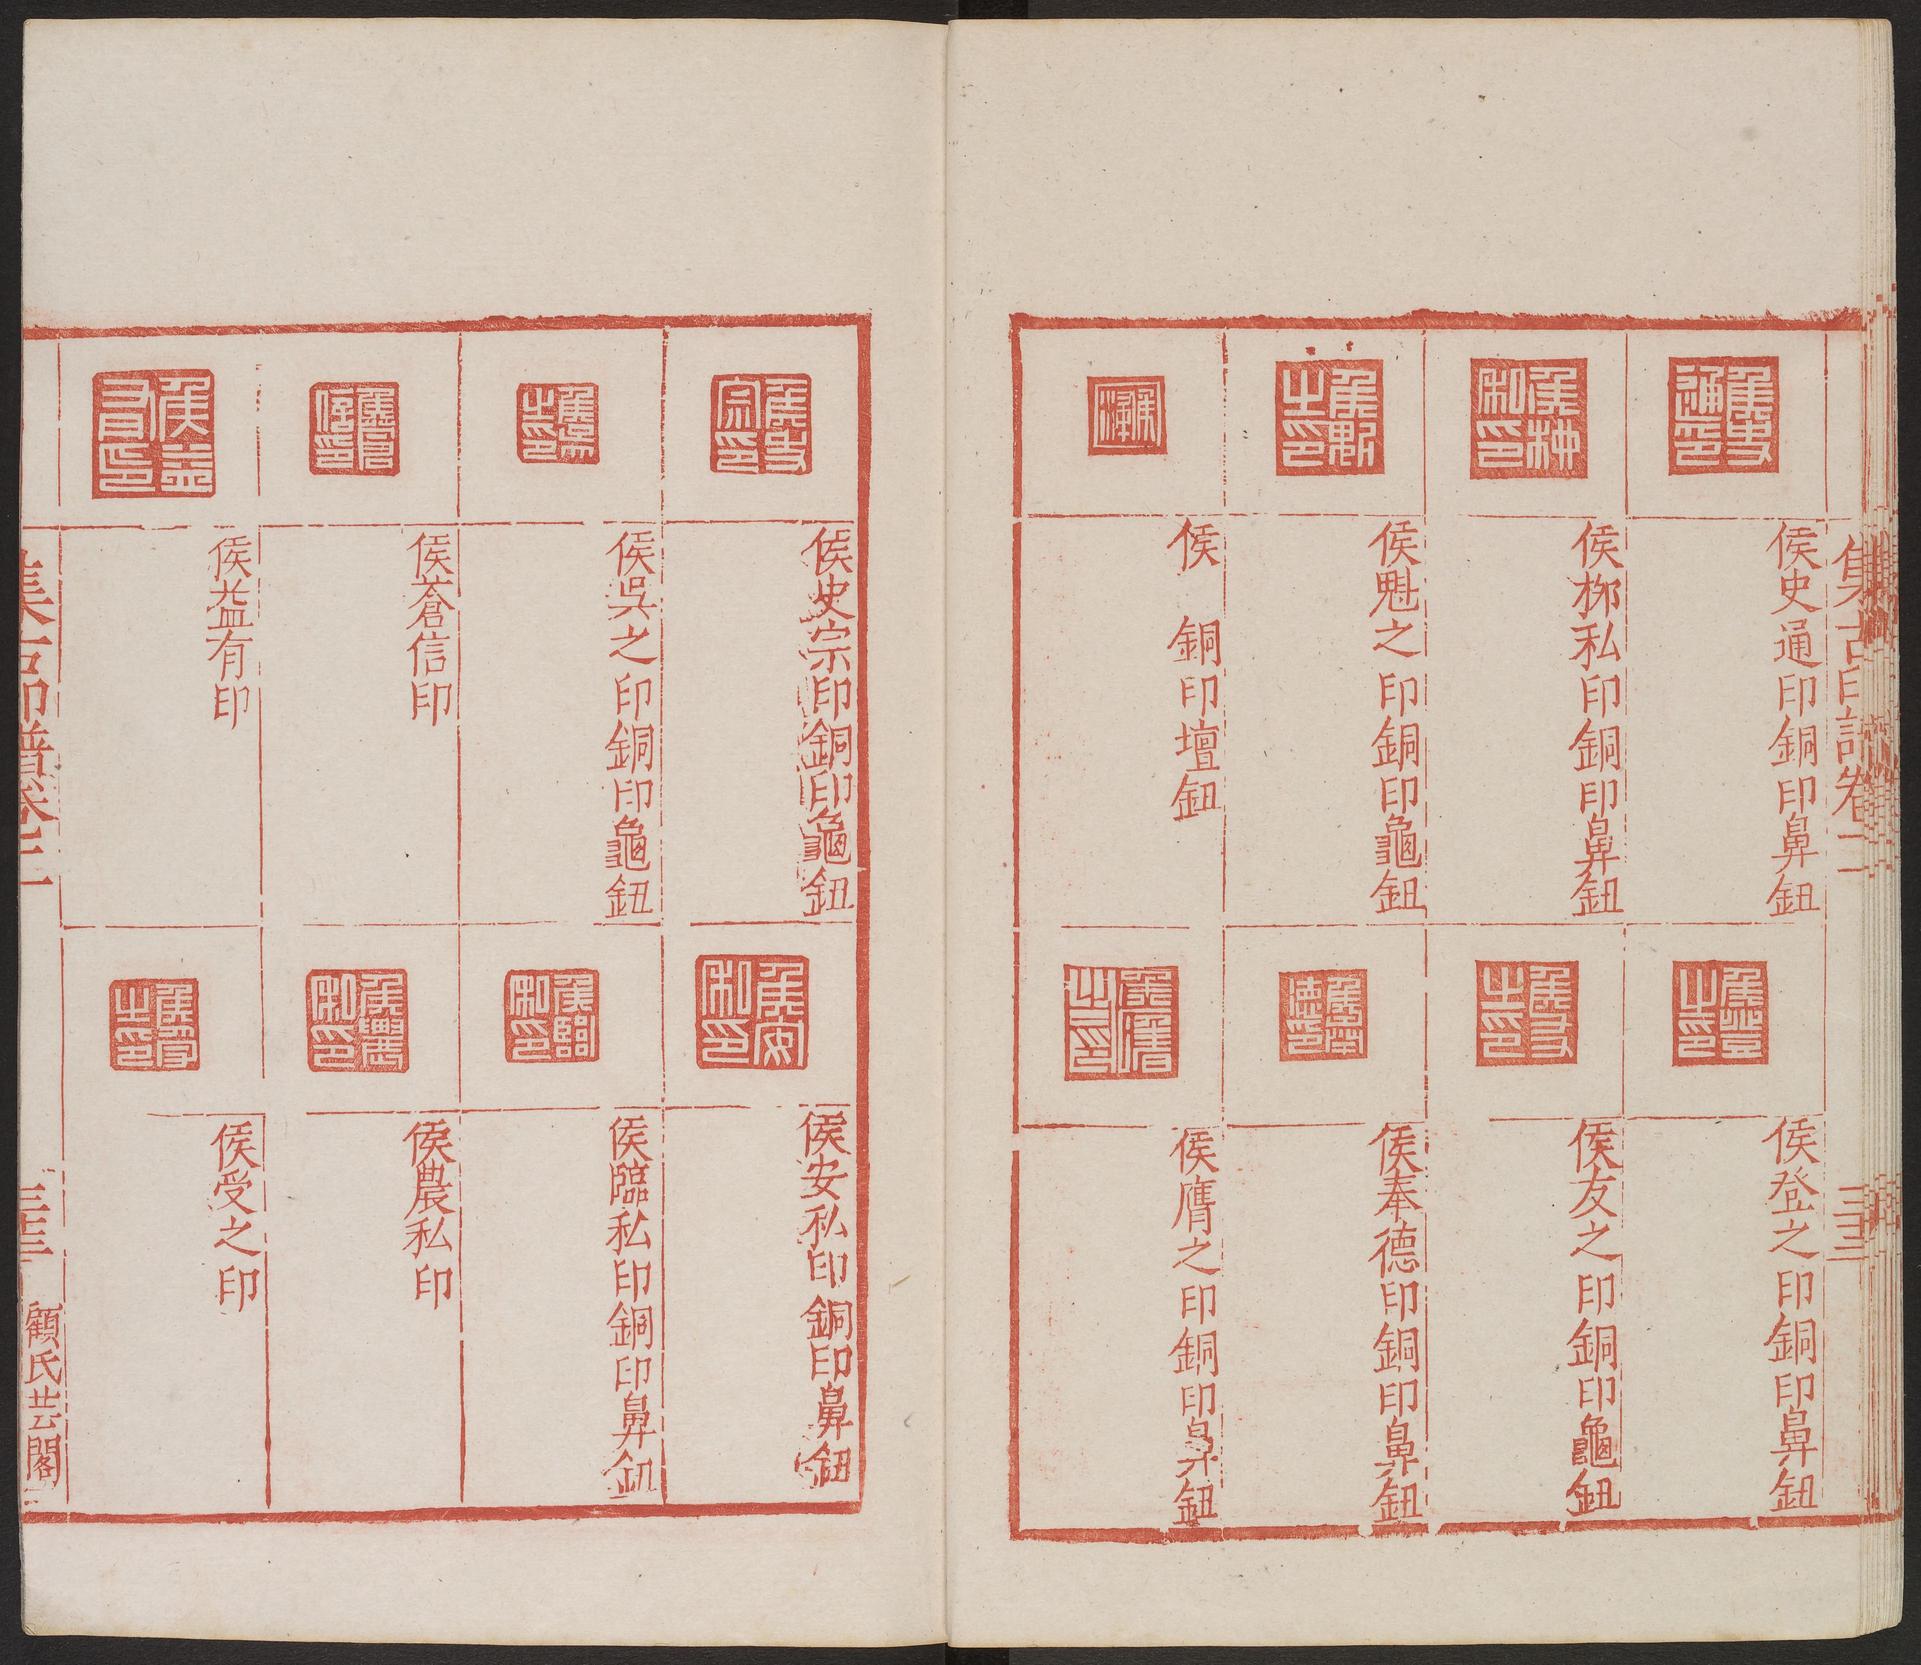 集古印譜卷二
侯史通印銅印鼻鈕
侯栁私印銅印鼻鈕
侯魁之印銅印龜鈕
侯　銅印壇鈕
侯登之印銅印鼻鈕
侯友之印銅印龜鈕
侯奉德印銅印鼻鈕
侯膺之印銅印鼻鈕
侯史宗印銅印龜鈕
侯吳之印銅印龜鈕
侯蒼信印
侯益有印
侯安私印銅印鼻鈕
侯臨私印銅印鼻鈕
侯農私印
侯受之印
集古印譜卷二
顧氏芸閣